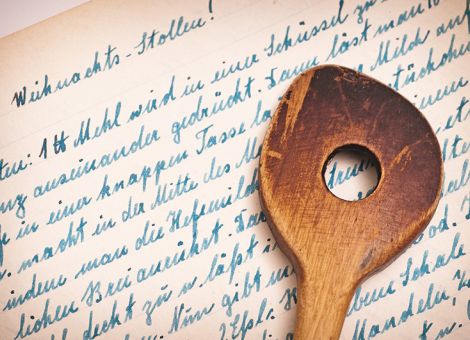 Weihnachts-Stollen!
ten: 1 ℔ Mehl wird in einer Schüssel zu
nz auseinander gedrückt. Dann läst man 10
in einer knappen Tasse la Milch auf
macht in der Mitte des Me stückchen
indem man die Hefemilch einem
lichen Brei anrührt. Dar
deckt zu u läßt od.
en. Nun gibt m ben Schale
2 Eßl. Mandeln,